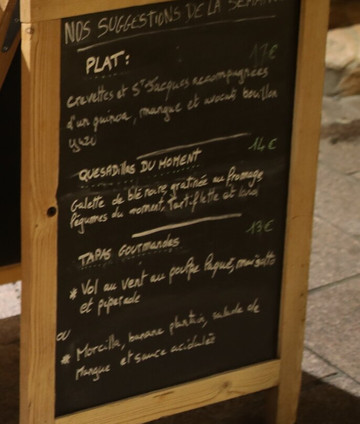 NOS SUGGESTIONS DE LA SEMAINE
PLAT: 17€
Crevettes et St Jacques accompagnées
d'un quinoa, mangue et avocat bouillon
yuzu
14€
QUESADILLAS DU MOMENT
Galette de blé noire gratinée au fromage
légumes du moment, tartiflette et
13€
TAPAS GOURMANDES
* Vol au vent au poulpe laqué,
et piperade
ou
* Morcilla, banane plantain, salade de
mangue et sauce acidulée